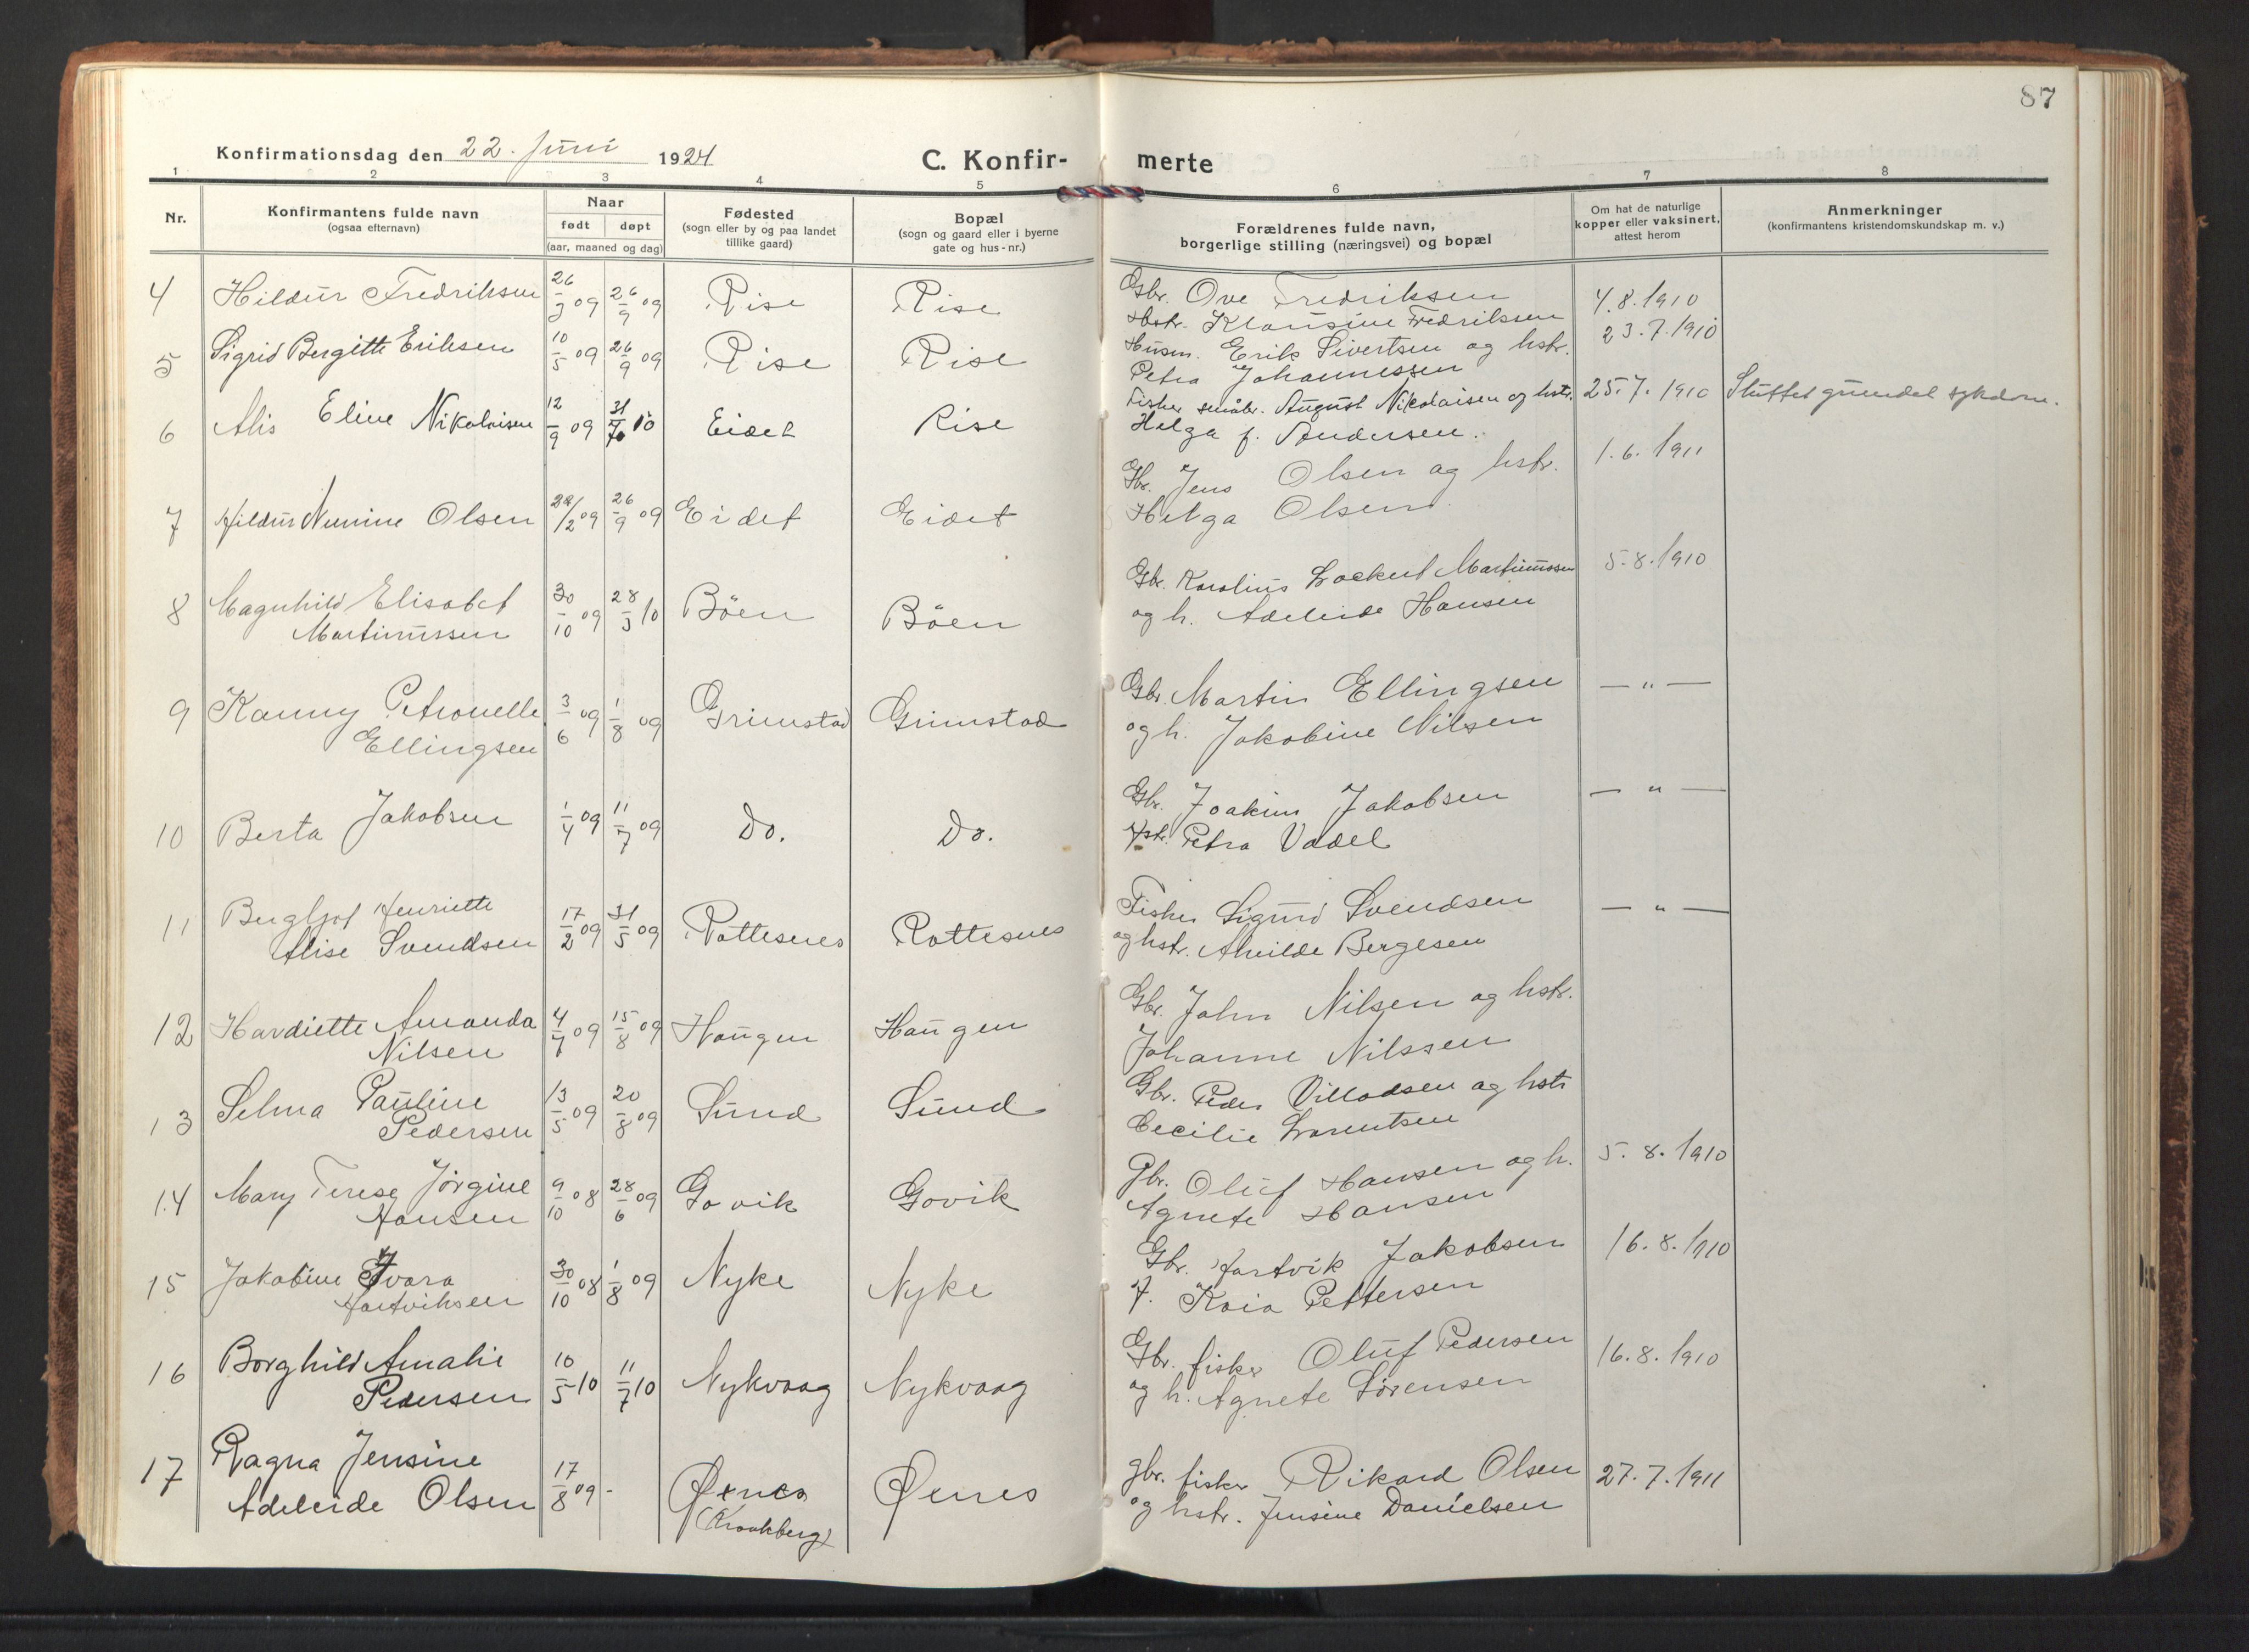 87
Konfirmationsdag den 22. Juni 1924
C. Konfir-merte
1 2 3 4 5 6 7 8
Nr.
Konfirmantens fulde navn
(ogsaa efternavn)
Naar
født døpt
(aar, maaned og dag)
Fødested
(sogn eller by og paa landet
tillike gaard)
Bopæl
(sogn og gaard eller i byerne
gate og hus-nr.)
Forældrenes fulde navn,
borgerlige stilling (næringsvei) og bopæl
Om hat de naturlige
kopper eller vaksinert,
attest herom
Anmerkninger
(konfirmantens kristendomskundskap m. v.)
4 Hildur Fredriksen 26/3 09 26/9 09 Rise Rise Gbr. Ove Fredriksen 4.8.1910
Hstr. Klausine Fredriksen
5 Sigrid Bergitte Eriksen 10/5 09 26/9 09 Rise Rise Husm. Erik Sivertsen og hstr. 23.7.1910
Petra Johannessen
6 Alis Eline Nikolaisen 12/9 09 31/7 10 Eidet Rise Fisker småbr. August Nikolaisen og hstr. 25.7.1910 Sluttet grundet sykdom.
Helga f. Andersen.
7 Hildur Nunine Olsen 22/2 09 26/9 09 Eidet Eidet Gbr. Jens Olsen og hstr. 1.6.1911
Helga Olsen
8 Magnhild Elisabet 30/10 09 28/3 10 Böen Böen Gbr. Karolius Lockert Martinussen 5.8.1910
Martinussen og h. Adeleide Hansen
9 Kanny Petronelle 3/6 09 1/8 09 Grimstad Grimstad Gbr. Martin Ellingsen — " —
Ellingsen og h. Jakobine Nilsen
10 Berta Jakobsen 1/4 09 11/7 09 Do. Do. Gbr. Joakim Jakobsen — " —
Hstr. Petra Vadel
11 Bergljot Henriette 17/2 09 31/5 09 Rottesnes Rottesnes Fisker Sigurd Svendsen — " —
Alise Svendsen og hstr. Alvilde Bergesen
12 Hardiette Amanda 4/7 09 15/8 09 Haugen Haugen Gbr. John Nilsen og hstr.
Nilsen Johanne Nilssen
13 Selma Pauline 13/5 09 20/8 09 Sund Sund Gbr. Peder Villadsen og hstr
Pedersen Cecilie Lorentsen
14 Mary Terese Jørgine 9/10 08 28/6 09 Govik Govik Gbr. Oluf Hansen og h. 5.8.1910
Hansen Agnete Hansen
15 Jakobine Ivara 30/10 08 1/8 09 Nyke Nyke Gbr. Hartvik Jakobsen 16.8.1910
Hartviksen H. Kaia Pettersen
16 Borghild Amalie 10/5 10 11/7 10 Nykvaag Nykvaag Gbr. fisker Oluf Pedersen 16.8.1910
Pedersen og h. Agnete Sørensen
17 Ragna Jensine 17/8 09 - Øxnes Øxnes gbr. fisker Rikard Olsen 27.7.1911
Adeleide Olsen (Kraakberg) og hstr. Jensine Danielsen